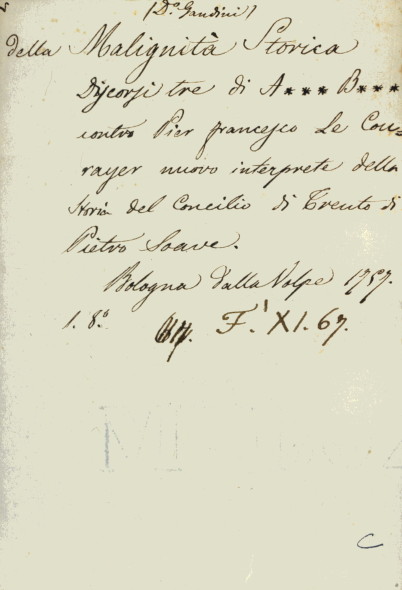 (D.º Gandini)
della Malignità Storica
Discorsi tre di A*** B***
contro Pier francesco Le Cou=
rayer nuovo interprete della
Storia del Concilio di Trento di
Pietro Soave.
Bologna dalla Volpe 1757.
1. 8.º F.' XI. 67.
C